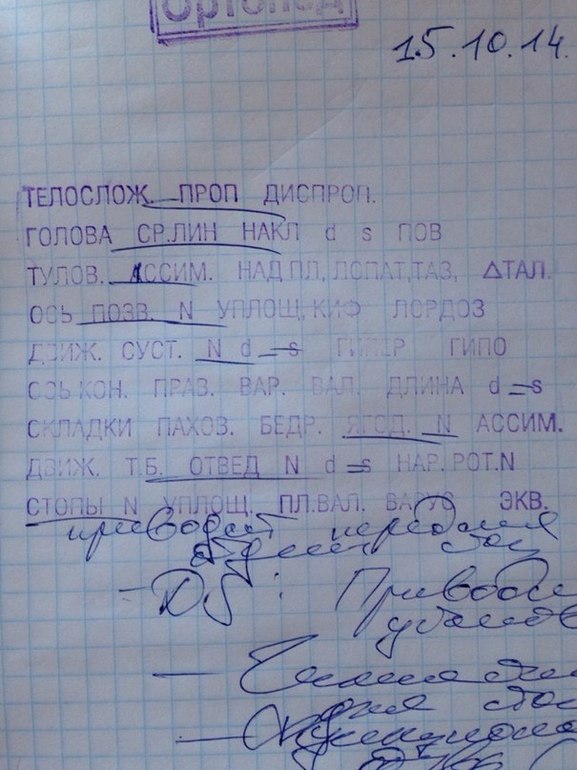 Ортопед
15.10.14.
ТЕЛОСЛОЖ. ПРОП ДИСПРОП.
ГОЛОВА СР.ЛИН НАКЛ d s ПОВ
ТУЛОВ. АССИМ. НАДПЛ, ЛОПАТ, ТАЗ, ΔТАЛ.
ОСЬ ПОЗВ. N УПЛОЩ, КИФ ЛОРДОЗ
ДВИЖ. СУСТ. N d = s ГИПЕР ГИПО
ОСЬ КОН. ПРАВ. ВАР. ВАЛ. ДЛИНА d = s
СКЛАДКИ ПАХОВ. БЕДР. ЯГОД. N АССИМ.
ДВИЖ. Т.Б. ОТВЕД N d = s НАР.РОТ.N
СТОПЫ N УПЛОЩ. ПЛ.ВАЛ. ВАРУС ЭКВ.
приводит передний
отдел стоп
- DS: Приведе